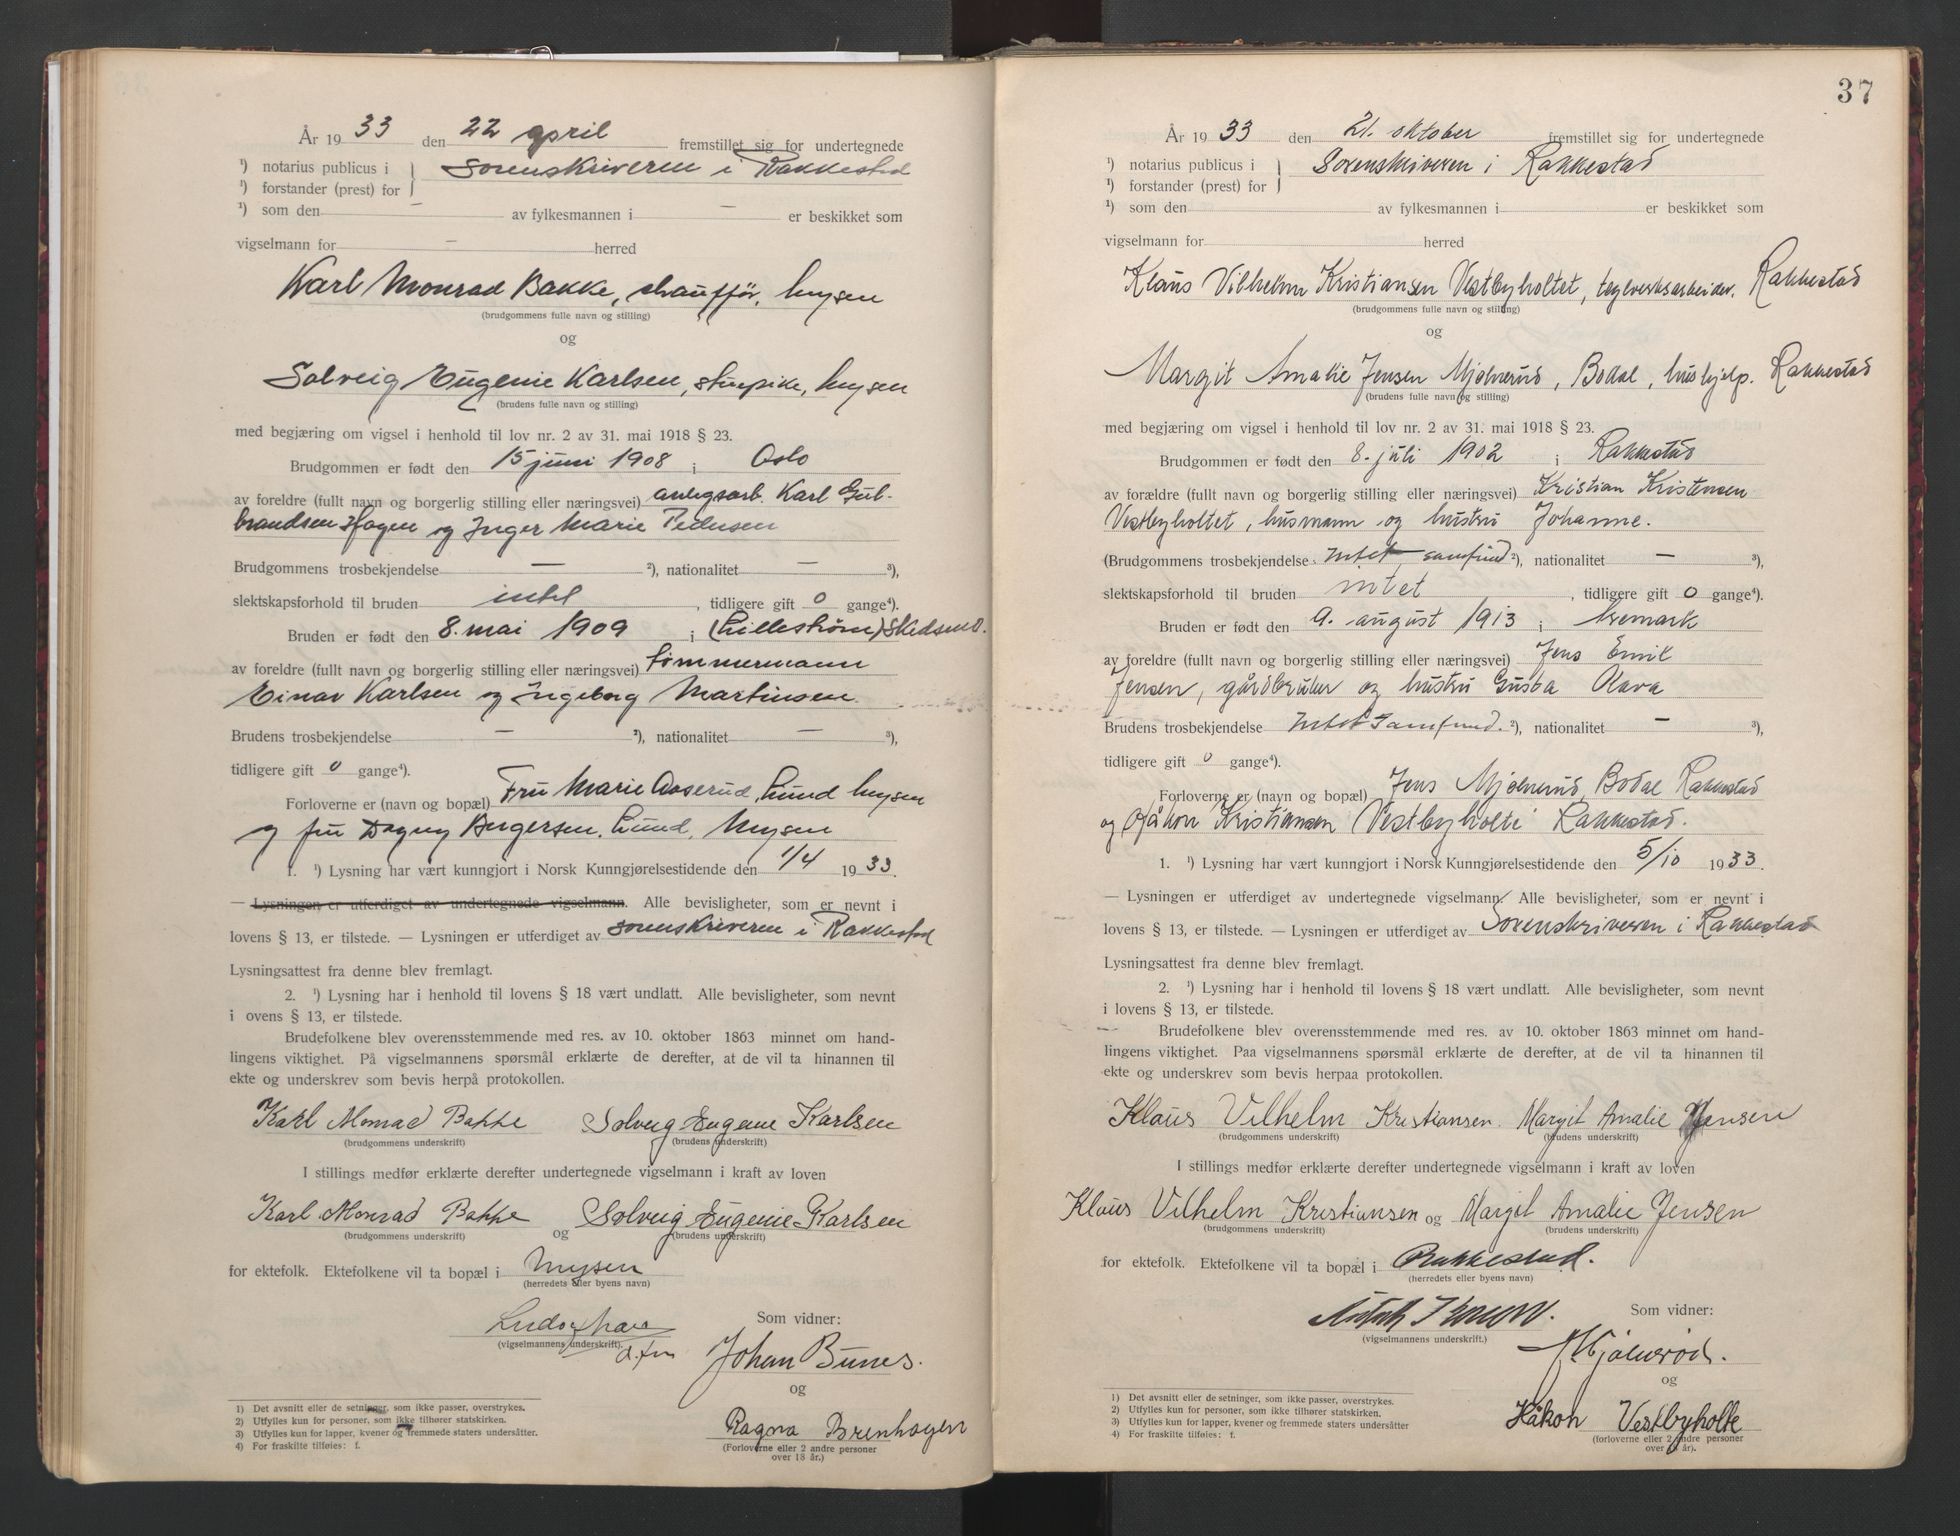 År 1933 den 22 april fremstillet sig for undertegnede
¹) notarius publicus i } Sorenskriveren i Rakkestad
¹) forstander (prest) for
¹) som den - av fylkesmannen i - er beskikket som
vigselmann for - herred
Karl Monrad Bakke, chauffør, Mysen
(brudgommens fulle navn og stilling)
og
Solveig Eugenie Karlsen, stuepike, Mysen
(brudens fulle navn og stilling)
med begjæring om vigsel i henhold til lov nr. 2 av 31. mai 1918 § 23.
Brudgommen er født den 15 juni 1908 i Oslo
av foreldre (fullt navn og borgerlig stilling eller næringsvei) anlegsarb. Karl Gul-
brandsen Hagen og Inger Marie Pedersen
Brudgommens trosbekjendelse — ²), nationalitet — ³),
slektskapsforhold til bruden intet, tidligere gift 0 gange⁴).
Bruden er født den 8. mai 1909 i (Lillestrøm) Skedsmo.
av foreldre (fullt navn og borgerlig stilling eller næringsvei) tømmermann
Einar Karlsen og Ingeborg Martinsen.
Brudens trosbekjendelse — ²), nationalitet — ³),
tidligere gift 0 gange⁴).
Forloverne er (navn og bopæl) Fru Marie Aaserud, Lund Mysen
og fru Dagny Birgersen, Lund, Mysen
1. ¹) Lysning har vært kunngjort i Norsk Kunngjørelsestidende den 1/4 1933.
— Lysningen er utferdiget av undertegnede vigselmann. Alle bevisligheter, som er nevnt i
lovens § 13, er tilstede. — Lysningen er utferdiget av sorenskriveren i Rakkestad
Lysningsattest fra denne blev fremlagt.
2. ¹) Lysning har i henhold til lovens § 18 vært undlatt. Alle bevisligheter, som nevnt
i ovens § 13, er tilstede.
Brudefolkene blev overensstemmende med res. av 10. oktober 1863 minnet om hand-
lingens viktighet. På vigselmannens spørsmål erklærte de derefter, at de vil ta hinannen til
ekte og underskrev som bevis herpå protokollen.
Karl Monrad Bakke Solveig Eugenie Karlsen
(brudgommens underskrift) (brudens underskrift)
I stillings medfør erklærte derefter undertegnede vigselmann i kraft av loven
Karl Monrad Bakke og Solveig Eugenie Karlsen
(brudgommens underskrift) (brudens underskrift)
for ektefolk. Ektefolkene vil ta bopæl i Mysen
(herredets eller byens navn)
Som vidner:
(vigselmannens underskrift).
Johan Bunes.
og
Ragna Brenhagen
(Forloverne eller 2 andre personer
over 18 år.)
1) Det avsnitt eller de setninger, som ikke passer, overstrykes.
2) Utfylles kun for personer, som ikke tilhører statskirken.
3) Utfylles kun for lapper, kvener og fremmede staters undersåtter.
4) For fraskilte tilføies: f.
37
År 1933 den 21. oktober fremstillet sig for undertegnede
¹) notarius publicus i } Sorenskriveren i Rakkestad
¹) forstander (prest) for
¹) som den av fylkesmannen i er beskikket som
vigselmann for herred
Klaus Vilhelm Kristiansen Vestbyholtet, teglverksarbeider. Rakkestad
(brudgommens fulle navn og stilling)
og
Margit Amalie Jensen Mjølnerud, Bodal, hushjelp. Rakkestad
(brudens fulle navn og stilling)
med begjæring om vigsel i henhold til lov nr. 2 av 31. mai 1918 § 23.
Brudgommen er født den 8. juli 1902 i Rakkestad
av forældre (fullt navn og borgerlig stilling eller næringsvei) Kristian Kristensen
Vestbyholtet, husmann og hustru Johanne.
(Brudgommens trosbekjendelse Intet samfund ²), nationalitet — ³),
slektskapsforhold til bruden intet, tidligere gift 0 gange⁴).
Bruden er født den 9. august 1913 i Aremark
av foreldre (fullt navn og borgerlig stilling eller næringsvei) Jens Emil
Jensen, gårdbruker og hustru Gusta Olava
Brudens trosbekjendelse Intet Samfund. ²), nationalitet — ³),
tidligere gift 0 gange⁴).
Forloverne er (navn og bopæl) Jens Mjølnerud, Bodal Rakkestad
og Håkon Kristiansen Vestbyholte Rakkestad.
1. ¹) Lysning har vært kunngjort i Norsk Kunngjørelsestidende den 5/10 1933.
— Lysningen er utferdiget av undertegnede vigselmann. Alle bevisligheter, som er nevnt i
lovens § 13, er tilstede. — Lysningen er utferdiget av Sorenskriveren i Rakkestad
Lysningsattest fra denne blev fremlagt.
2. ¹) Lysning har i henhold til lovens § 18 vært undlatt. Alle bevisligheter, som nevnt
i lovens § 13, er tilstede.
Brudefolkene blev overensstemmende med res. av 10. oktober 1863 minnet om hand-
lingens viktighet. Paa vigselmannens spørsmål erklærte de derefter, at de vil ta hinannen til
ekte og underskrev som bevis herpaa protokollen.
Klaus Vilhelm Kristiansen. Margit Amalie Jensen
(brudgommens underskrift) (brudens underskrift)
I stillings medfør erklærte derefter undertegnede vigselmann i kraft av loven
Klaus Vilhelm Kristiansen og Margit Amalie Jensen
(brudgommens underskrift) (brudens underskrift)
for ektefolk. Ektefolkene vil ta bopæl i Rakkestad.
(herredets eller byens navn)
Som vidner:
(vigselmannens underskrift.)
J Mjølnerød.
og
Håkon Vestbyholte
(forloverne eller 2 andre personer
over 18 år.)
1) Det avsnitt eller de setninger, som ikke passer, overstrykes.
2) Utfylles kun for personer, som ikke tilhører statskirken.
3) Utfylles kun for lapper, kvener og fremmede staters undersåtter
4) For fraskilte tilføies: f.